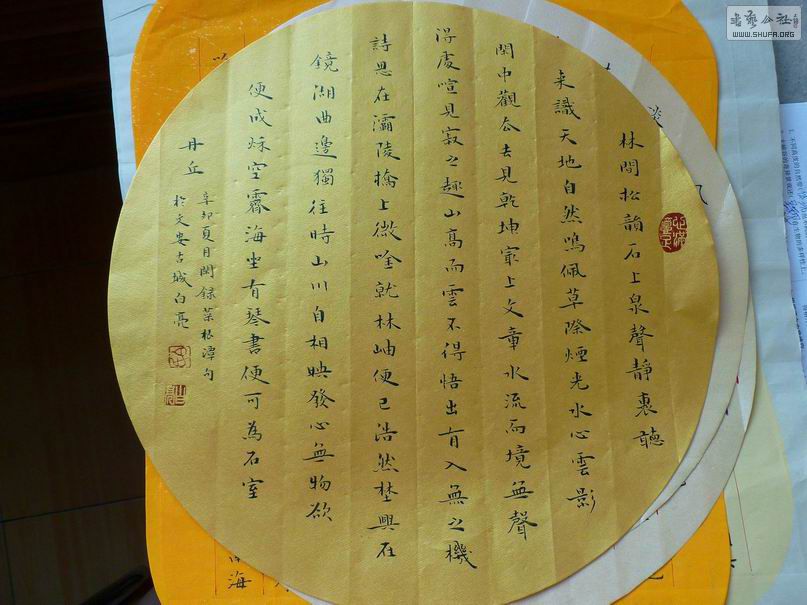 林間松韻石上泉聲靜裏聽
来識天地自然鳴佩草際煙光水心雲影
閑中觀么去見乾坤冣上文章水流而境無聲
得處喧見寂之趣山高而雲不得悟出有入無之機
詩思在灞陵橋上微唫就林岫便已浩然埜興在
鏡湖曲邊獨往時山川自相映發心無物欲
便成秌空霽海坐有琴書便可為石室
丹丘
辛卯夏月閑録菜根潭句
於文安古城白亮
書藝公社
WWW.SHUFA.ORG